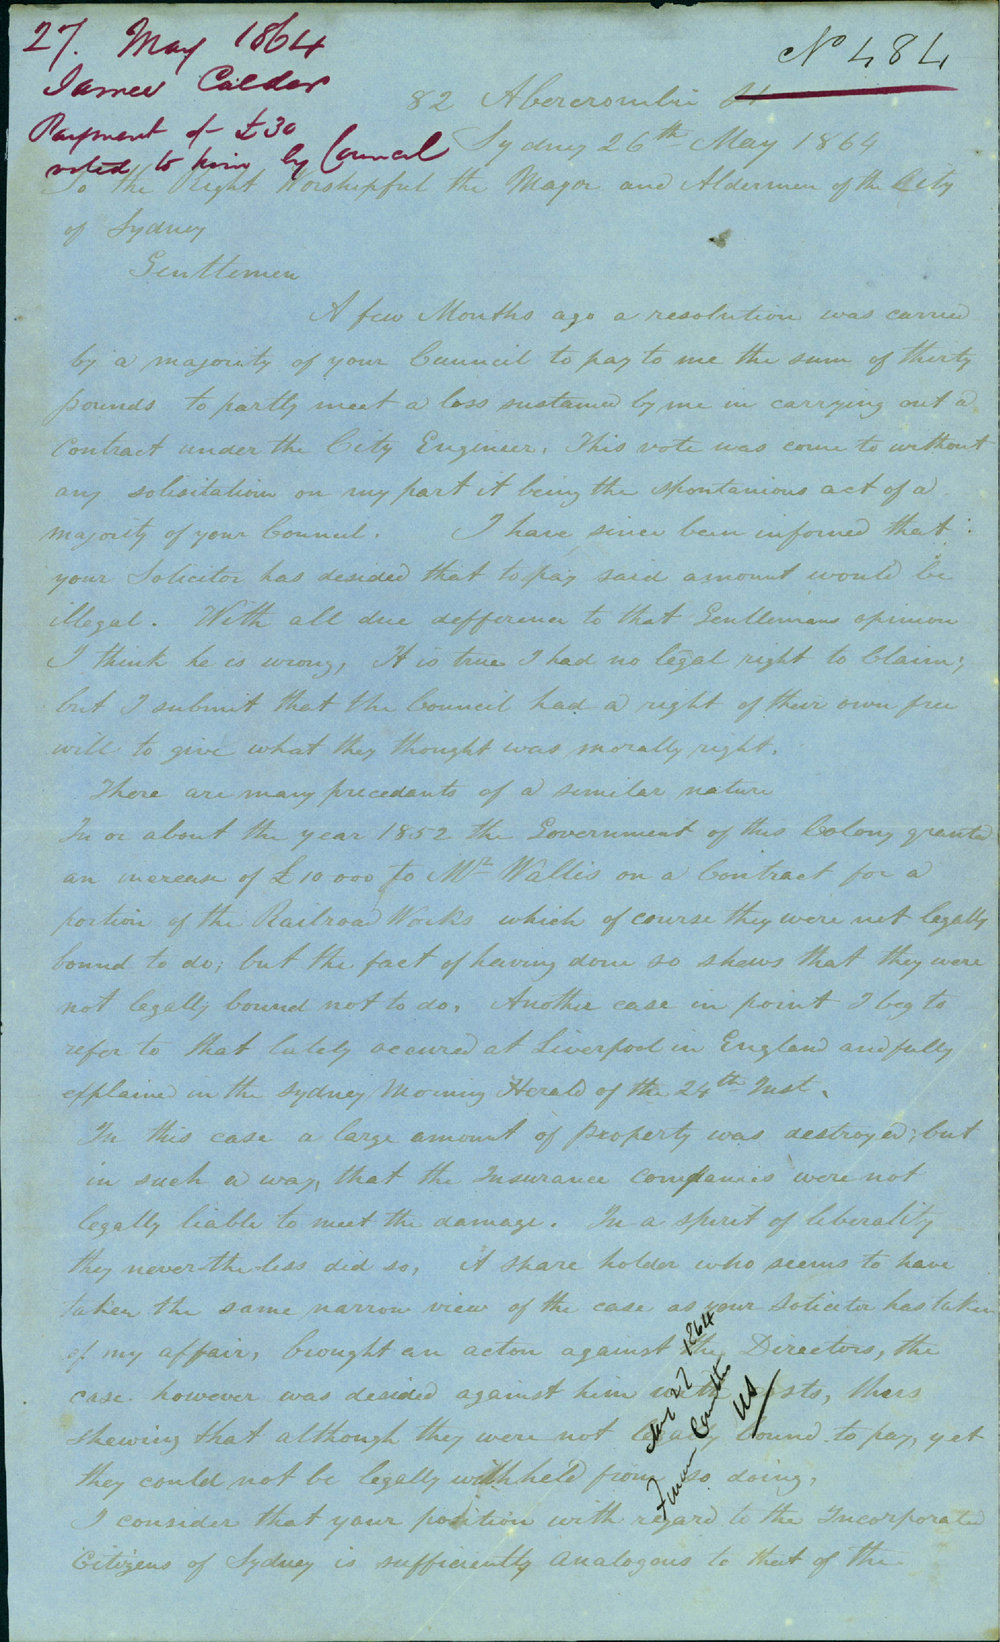 27. May 1864
James Calder
Payment of £30
voted to him by Council
No 484
82 Abercrombie St
Sydney 26th May 1864
To the Right Worshipful the Mayor and Aldermen of the City
of Sydney
Gentlemen
A few Months ago a resolution was carried
by a majority of your Council to pay to me the sum of thirty
pounds to partly meet a loss sustained by me in carrying out a
Contract under the City Engineer. This vote was come to without
any solisitation on my part it being the spontanious act of a
majority of your Council. I have since been informed that
your Solicitor has desided that to pay said amount would be
illegal. With all due defference to that Gentlemans opinion
I think he is wrong, It is true I had no legal right to Claim;
but I submit that the Council had a right of their own free
will to give what they thought was morally right.
There are many precedants of a similar nature
In or about the year 1852 the Government of this Colony granted
an increase of £10000 to Mr Wallis on a Contract for a
portion of the Railroad Works which of course they were not legally
bound to do; but the fact of having done so shews that they were
not legally bound not to do. Another case in point I beg to
refer to that lately occured at Liverpool in England and fully
explained in the Sydney Morning Herald of the 24th Inst.
In this case a large amount of property was destroyed; but
in such a way, that the Insurance Companies were not
legally liable to meet the damage. In a spirit of liberality
they never-the-less did so, A share holder who seems to have
taken the same narrow view of the case as your Soliciter has taken
of my affair, brought an acton against the Directors, the
case however was desided against him with costs, thus
shewing that although they were not legally bound to pay, yet
they could not be legally withheld from so doing.
I consider that your position with regard to the Incorporated
Citizens of Sydney is sufficiently analogous to that of the
May 27 1864
Finance Committee